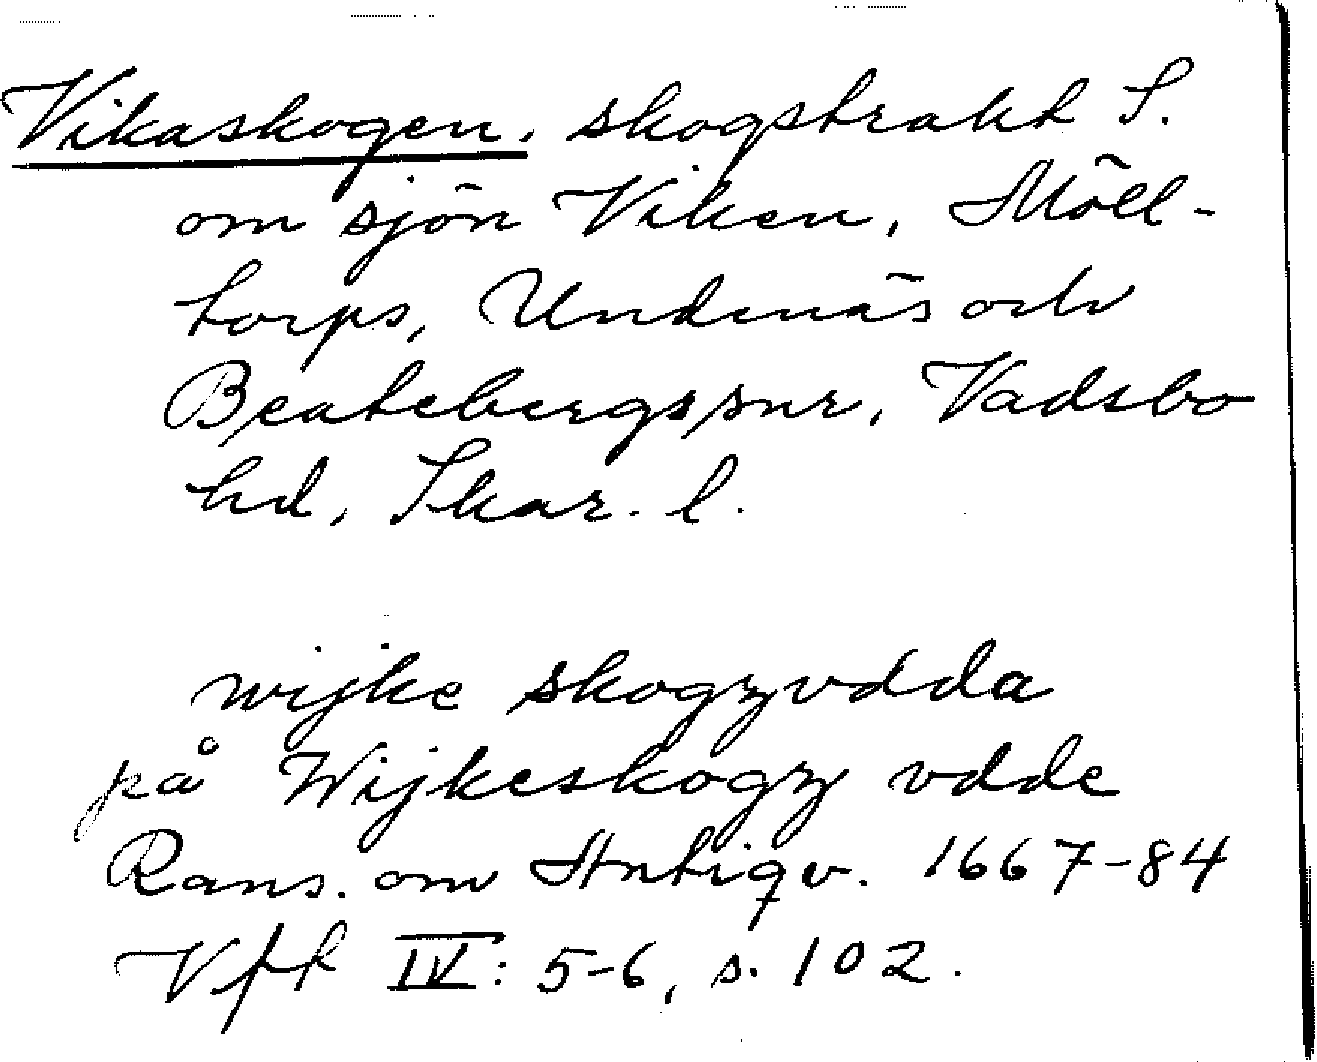 Vikaskogen, skogstrakt S.
om sjön Viken, Möll-
torps, Undenäs och
Beatebergs snr, Vadsbo
hd, Skar. l.
wijke skogzvdda
på Wijkeskogz vdde
Rans. om Antiqv. 1667-84
Vft IV: 5-6, s. 102.